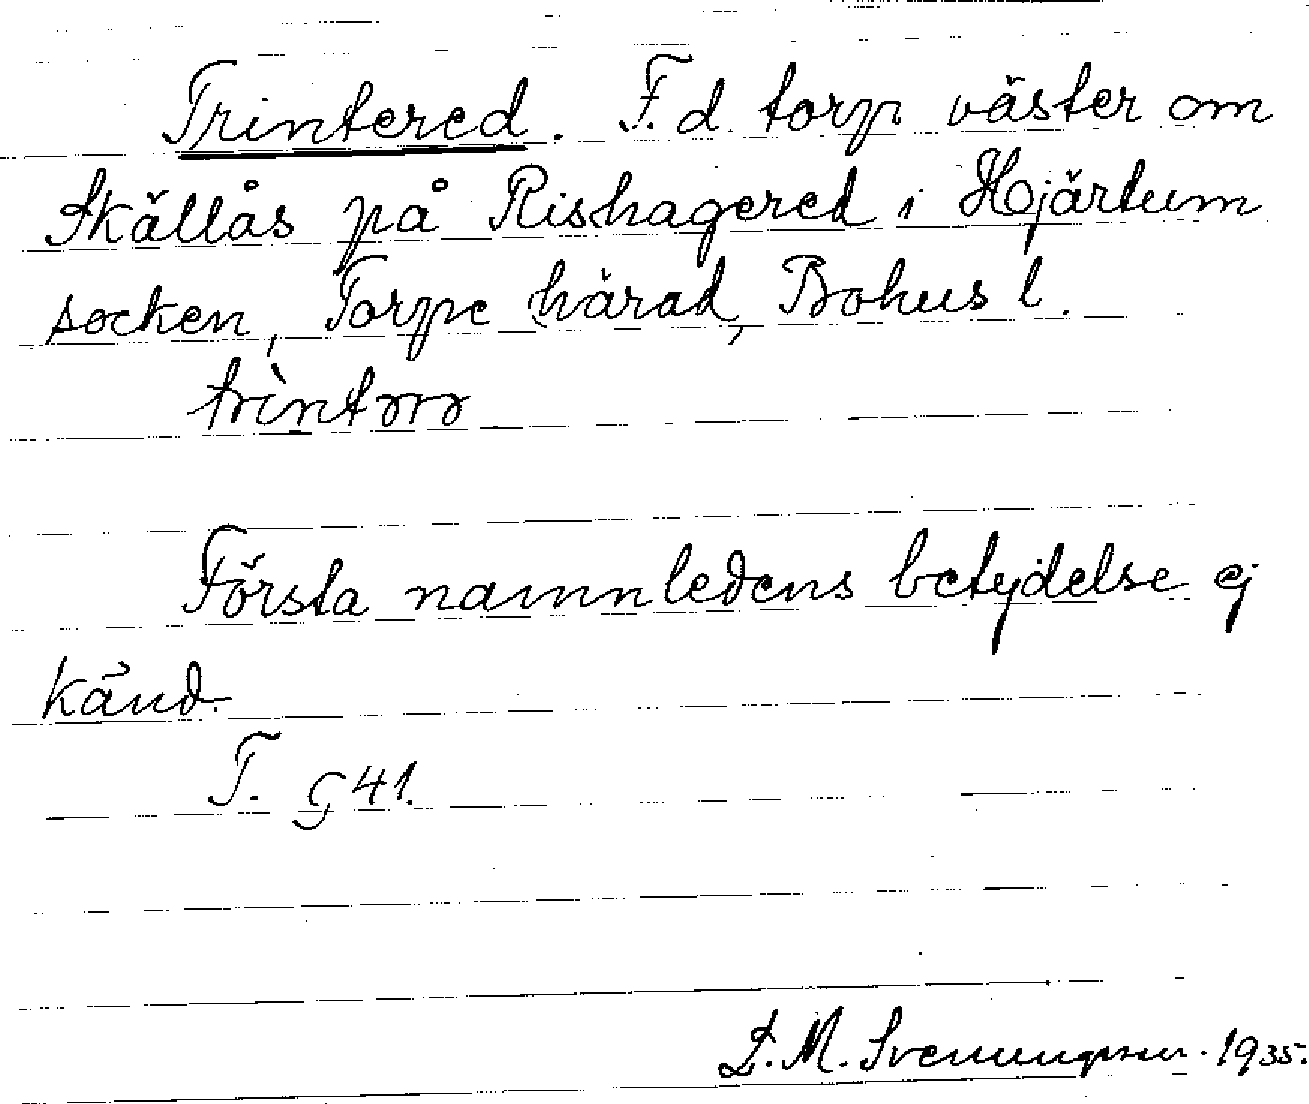 Trintered. F.d. torp väster om
Skällås på Rishagered i Hjärtum
socken, Torpe härad, Bohus l.
trìntərə
Första namnledens betydelse ej
känd.
T. G 41.
L. M. Svenungsson. 1935.